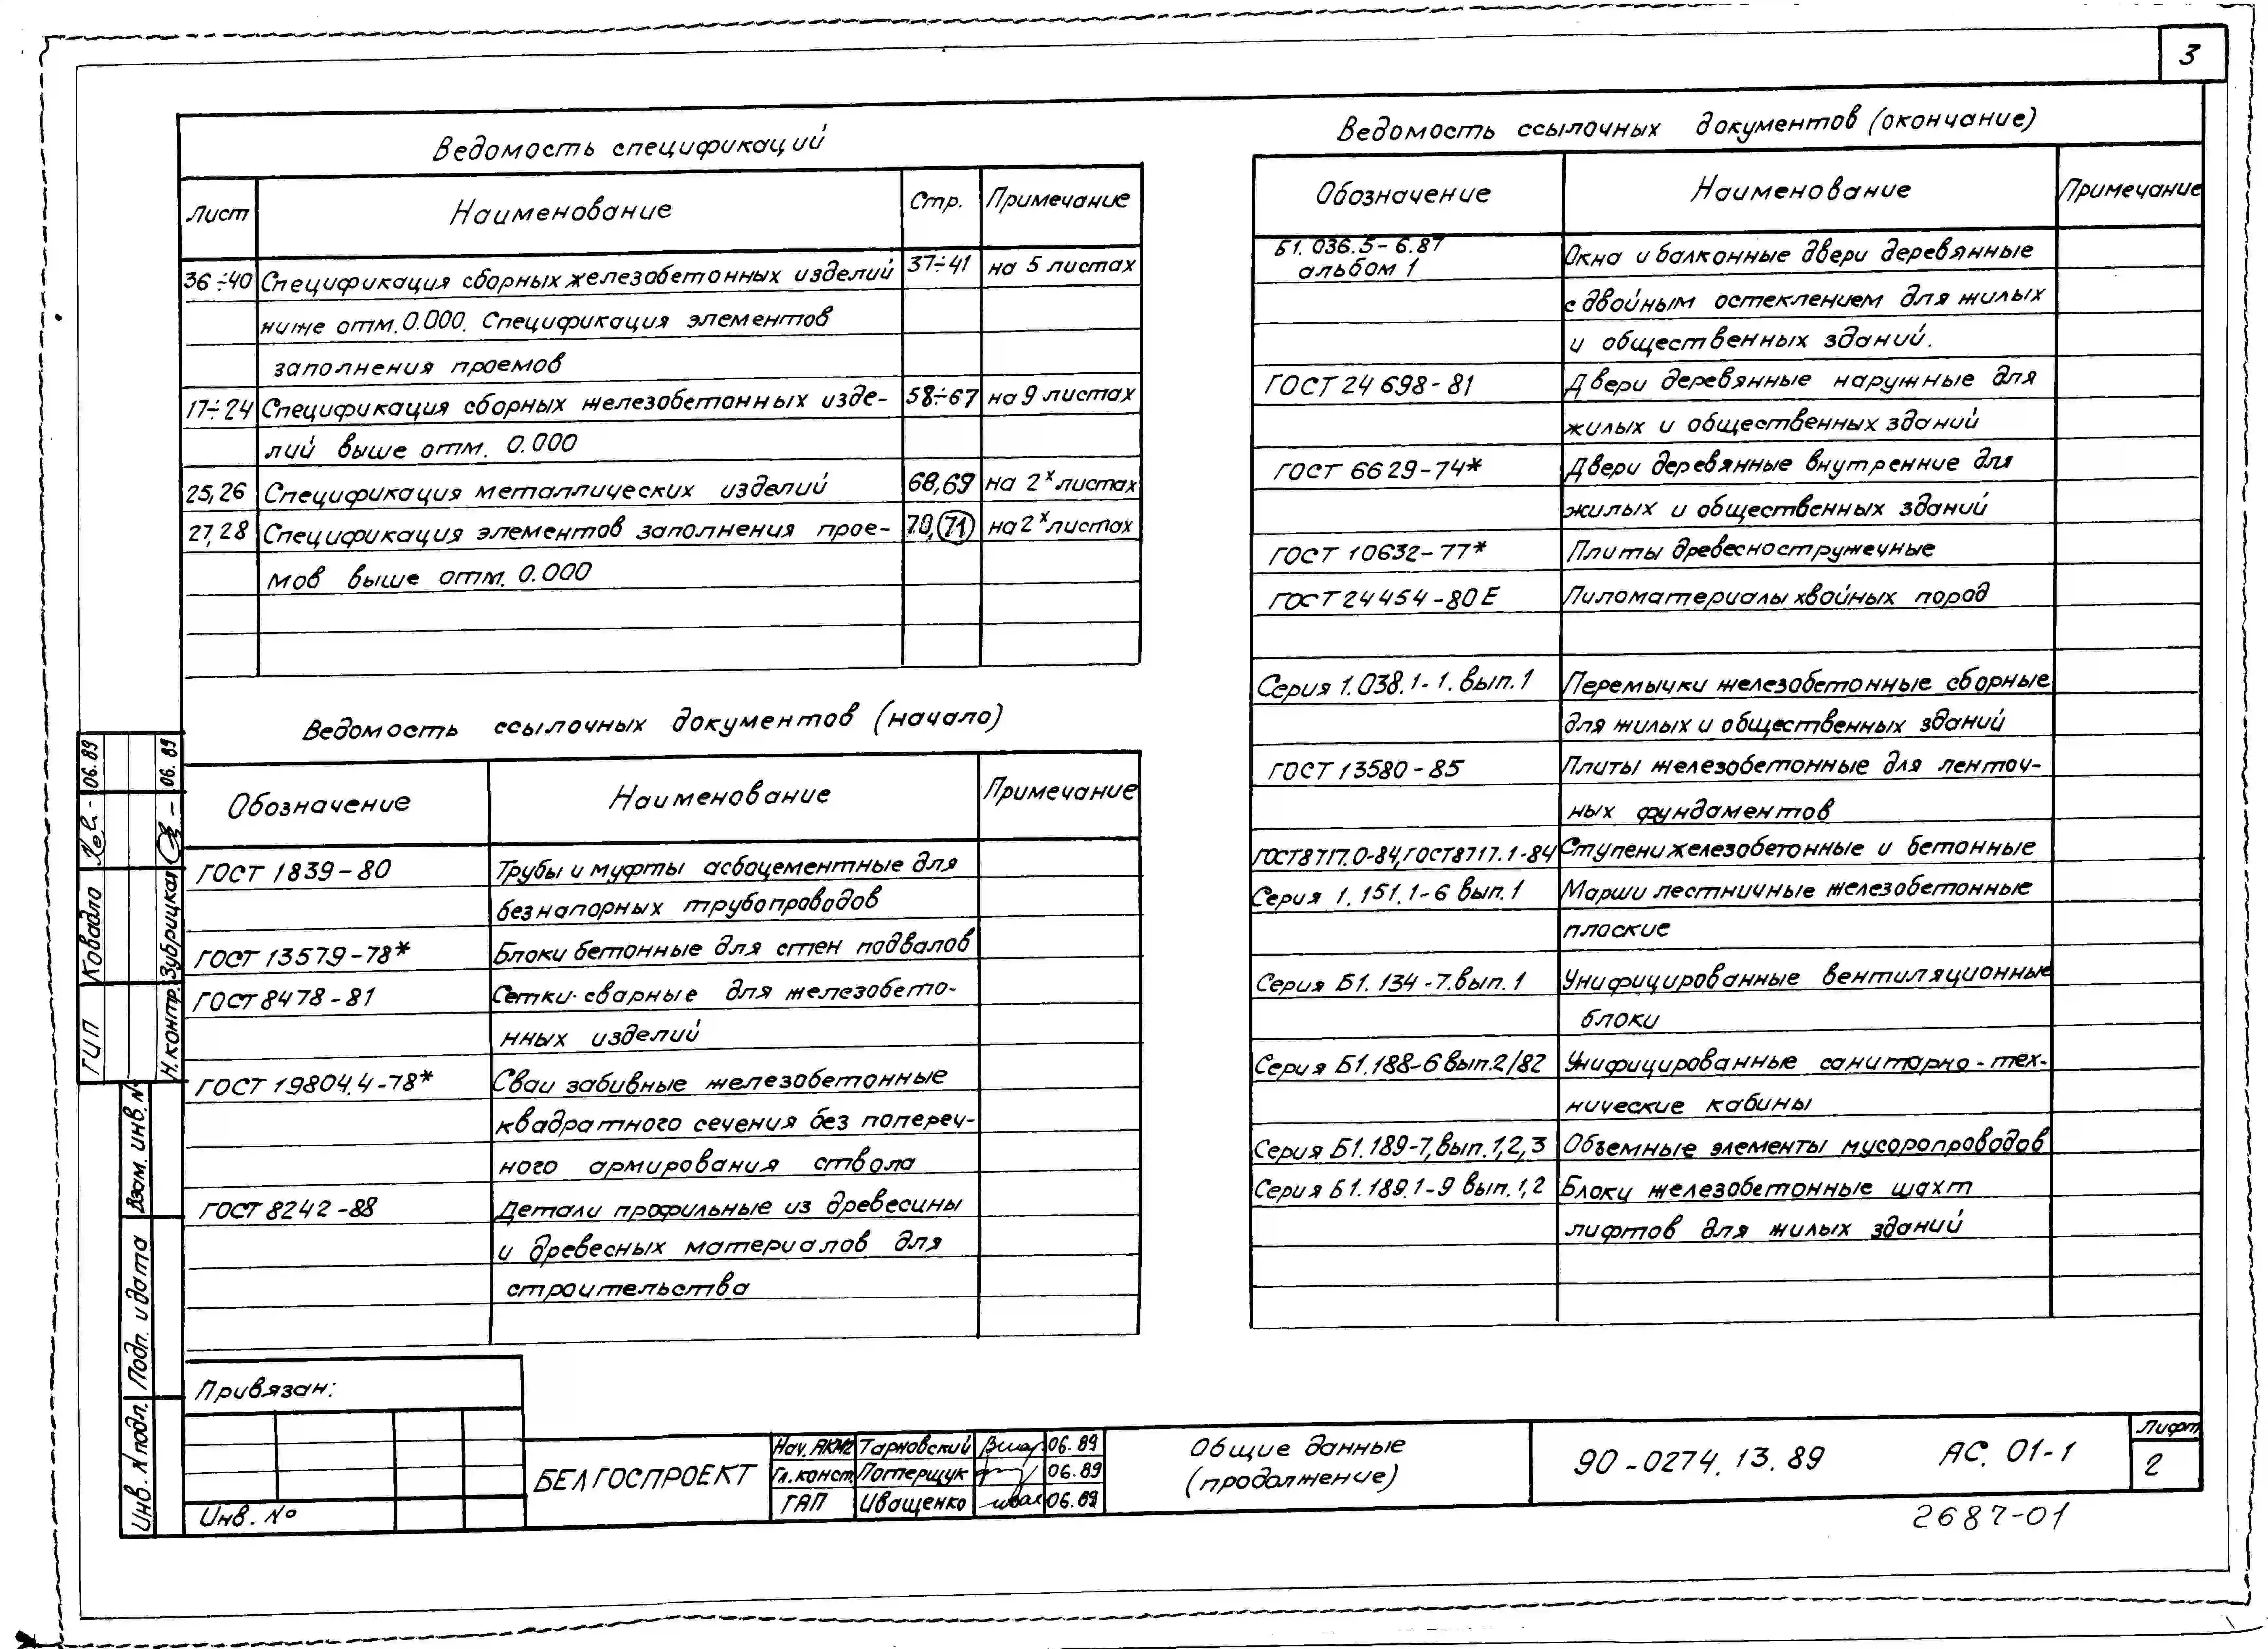 3
Ведомость спецификаций
Лист Наименование Стр. Примечание
36÷40 Спецификация сборных железобетонных изделий 37÷41 на 5 листах
ниже отм. 0.000. Спецификация элементов
заполнения проемов
17÷24 Спецификация сборных железобетонных изде- 58÷67 на 9 листах
лий выше отм. 0.000
25,26 Спецификация металлических изделий 68,69 на 2х листах
27,28 Спецификация элементов заполнения прое- 70,71 на 2х листах
мов выше отм. 0.000
Ведомость ссылочных документов (начало)
Обозначение Наименование Примечание
ГОСТ 1839-80 Трубы и муфты асбоцементные для
безнапорных трубопроводов
ГОСТ 13579-78* Блоки бетонные для стен подвалов
ГОСТ 8478-81 Сетки сварные для железобето-
нных изделий
ГОСТ 19804.4-78* Сваи забивные железобетонные
квадратного сечения без попереч-
ного армирования ствола
ГОСТ 8242-88 Детали профильные из древесины
и древесных материалов для
строительства
Ведомость ссылочных документов (окончание)
Обозначение Наименование Примечание
Б1.036.5-6.87 Окна и балконные двери деревянные
альбом 1
с двойным остеклением для жилых
и общественных зданий.
ГОСТ 24698-81 Двери деревянные наружные для
жилых и общественных зданий
ГОСТ 6629-74* Двери деревянные внутренние для
жилых и общественных зданий
ГОСТ 10632-77* Плиты древесностружечные
ГОСТ 24454-80Е Пиломатериалы хвойных пород
Серия 1.038.1-1. вып.1 Перемычки железобетонные сборные
для жилых и общественных зданий
ГОСТ 13580-85 Плиты железобетонные для ленточ-
ных фундаментов
ГОСТ 8717.0-84, ГОСТ 8717.1-84 Ступени железобетонные и бетонные
Серия 1.151.1-6 вып.1 Марши лестничные железобетонные
плоские
Серия Б1.134-7. вып.1 Унифицированные вентиляционные
блоки
Серия Б1.188-6 вып.2/82 Унифицированные санитарно-тех-
нические кабины
Серия Б1.189-7, вып.1,2,3 Объемные элементы мусоропроводов
Серия Б1.189.1-9 вып.1,2 Блоки железобетонные шахт
лифтов для жилых зданий
ГИП Ковадло 06.89
Н.контр. Зубрицкая 06.89
Взам. инв. №
Подп. и дата
Инв. № подл.
Привязан:
Инв. №
БЕЛГОСПРОЕКТ
Нач. АКМ2 Тарновский 06.89
Гл. конст. Потерщук 06.89
ГАП Иващенко 06.89
Общие данные
(продолжение)
90-0274.13.89 АС. 01-1
Лист
2
2687-01